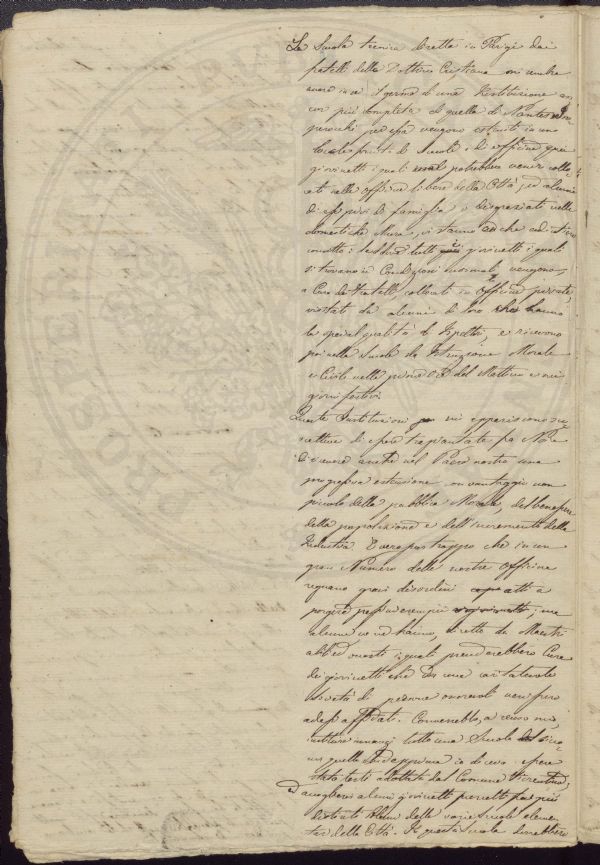 La Scuola tecnica diretta in Parigi dai
fratelli della Dottrina Cristiana mi sembra
avere in se il germe di una Istituzione an
cor più completa di quella di Nantes Im
perocchè per essa vengono istruiti in un
locale di Scuole e di officine quei
giovinetti i quali potrebbero venir collo
cati nelle officine libere della Città, ed alcuni
di essi privi di famiglia o disgraziati nelle
domestiche Mura, vi stanno anche
convitto: laddove tutti i giovinetti i quali
si trovano in Condizioni normali vengono
a Cura dei Fratelli, collocati in Officine private,
visitati da alcuni di loro che hanno
la special qualità di Ispettori, e ricevono
poi nella Scuola la Istruzione Morale
e Civile nelle prime Ore del Mattino e nei
giorni festivi
Queste Istituzioni mi appariscono su
scettive di essere trapiantate fra Noi e
di ricevere anche nel Paese nostro una
progressiva estensione, con vantaggio non
piccolo della pubblica Morale, del benessere
della popolazione e dell'incremento della
Industria. È vero pur troppo che in un
gran Numero delle nostre Officine
regnano gravi disordini atti a
porgere pessimi esempii ma
alcune ve ne hanno, dirette da Maestri
abili ed onesti i quali prenderebbero Cura
dei giovinetti che da una caritatevole
Società di persone onorevoli venissero
ad essi affidati. Converrebbe, a senso mio,
istituire innanzi tutto una Scuola
quella che dapprima io diceva essere
stata testè adottata dal Comune Fiorentino,
ed accogliervi alcuni giovinetti prescelti fra i più
distinti Alunni delle varie Scuole elemen
tari della Città. In questa Scuola dovrebbero